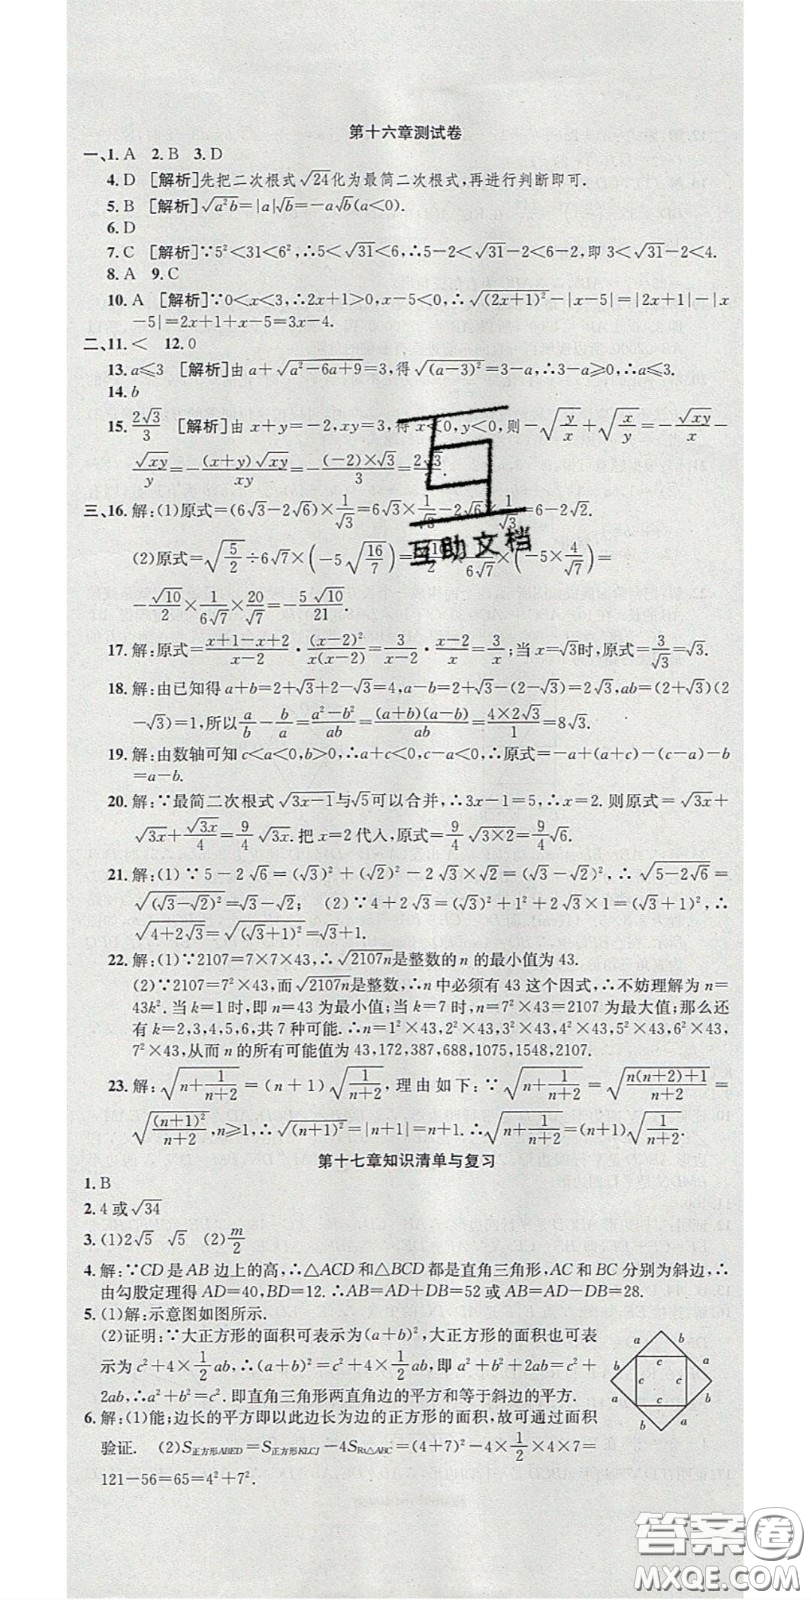 第十六章测试卷
一、1. A 2. B 3. D
4. D [解析]先把二次根式√24化为最简二次根式,再进行判断即可.
5. B [解析]√(a²b)=|a|√b=-a√b(a<0).
6. D
7. C [解析]∵5²<31<6²,∴5<√31<6,∴5-2<√31-2<6-2,即3<√31-2<4.
8. A 9. C
10. A [解析]∵0<x<3,∴2x+1>0,x-5<0,∴√((2x+1)²)-|x-5|=|2x+1|-|x
-5|=2x+1+x-5=3x-4.
二、11. < 12. 0
13. a≤3 [解析]由a+√(a²-6a+9)=3,得√((a-3)²)=3-a,∴3-a≥0,∴a≤3.
14. b
15. 2√3/3 [解析]由x+y=-2,xy=3,得x<0,y<0,则-√(y/x)+√(x/y)=-√(xy)/x-
√(xy)/y=-(x+y)√(xy)/xy=-(-2)×√3/3=2√3/3.
三、16. 解:(1)原式=(6√3-2√6)×1/√3=6√3×1/√3-2√6×1/√3=6-2√2.
(2)原式=√(5/2)÷6√7×(-5√(16/7))=√10/2×1/(6√7)×(-5×4/√7)=
-√10/2×1/(6√7)×20/√7=-5√10/21.
17. 解:原式=(x+1-x+2)/(x-2)·(x-2)²/(x(x-2))=3/(x-2)·(x-2)/x=3/x;当x=√3时,原式=3/√3=√3.
18. 解:由已知得a+b=2+√3+2-√3=4,a-b=2+√3-(2-√3)=2√3,ab=(2+√3)(2
-√3)=1,所以a/b-b/a=(a²-b²)/ab=(a+b)(a-b)/ab=4×2√3/1=8√3.
19. 解:由数轴可知c<a<0,b>0,∴a+c<0,c-a<0,∴原式=-a+(a+c)-(c-a)-b
=a-b.
20. 解:∵最简二次根式√(3x-1)与√5可以合并,∴3x-1=5,∴x=2. 则原式=√(3x)+
√(3x)+√(3x)/4=9/4√(3x). 把x=2代入,原式=9/4√(3×2)=9/4√6.
21. 解:(1)∵5-2√6=(√3)²+(√2)²-2√3×√2=(√3-√2)²,∴√(5-2√6)=
√((√3-√2)²)=√3-√2; (2)∵4+2√3=(√3)²+1²+2√3×1=(√3+1)²,∴
√(4+2√3)=√((√3+1)²)=√3+1.
22. 解:(1)∵2107=7×7×43,∴√(2107n)是整数的n的最小值为43.
(2)∵2107=7²×43,而√(2107n)是整数,∴n中必须有43这个因式,∴不妨理解为n=
43k². 当k=1时,即n=43为最小值;当k=7时,n=7²×43=2107为最大值;那么还
有k=2,3,4,5,6,共7种可能.∴n=1²×43,2²×43,3²×43,4²×43,5²×43,6²×43,
7²×43,从而n的所有可能值为43,172,387,688,1075,1548,2107.
23. 解:√(n+1/(n+2))=(n+1)√(1/(n+2)),理由如下:∵√(n+1/(n+2))=√((n(n+2)+1)/(n+2))=
√((n+1)²/(n+2)),n≥1,∴√((n+1)²)=|n+1|=n+1.∴√(n+1/(n+2))=(n+1)√(1/(n+2)).
第十七章知识清单与复习
1. B
2. 4或√34
3. (1)2√5 √5 (2)m/2
4. 解:∵CD是AB边上的高,∴△ACD和△BCD都是直角三角形,AC和BC分别为斜边,∴
由勾股定理得AD=40,BD=12.∴AB=AD+DB=52或AB=AD-DB=28.
5. (1)解:示意图如图所示.
(2)证明:∵大正方形的面积可表示为(a+b)²,大正方形的面积也可表
示为c²+4×1/2ab,∴(a+b)²=c²+4×1/2ab,即a²+b²+2ab=c²+
2ab,∴a²+b²=c². 即直角三角形两直角边的平方和等于斜边的平方.
a b
b a
c
c c
c
a b
b a
6. 解:(1)能;边长的平方即以此边长为边的正方形的面积,故可通过面积
验证. (2)S正方形ABED=S正方形KLCJ-4SRt△ABC=(4+7)²-4×1/2×4×7=
121-56=65=4²+7².
互助文档
答案卷
MXQE.COM